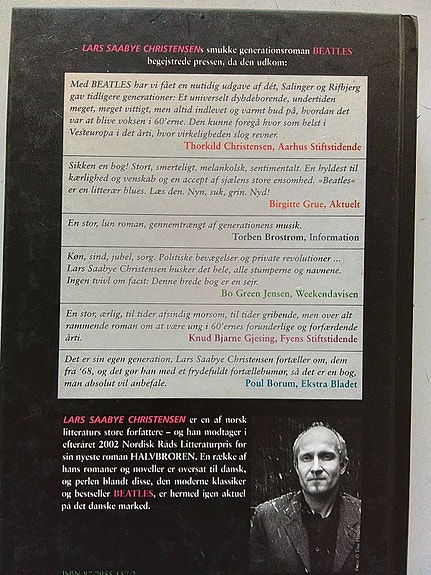 LARS SAABYE CHRISTENSENs smukke generationsroman BEATLES
begejstrede pressen, da den udkom:
Med BEATLES har vi fået en nutidig udgave af dét, Salinger og Rifbjerg
gav tidligere generationer: Et universelt dybdeborende, undertiden
meget, meget vittigt, men altid indlevet og varmt bud på, hvordan det
var at blive voksen i 60'erne. Den kunne foregå hvor som helst i
Vesteuropa i det årti, hvor virkeligheden slog revner.
Thorkild Christensen, Aarhus Stiftstidende
Sikken en bog! Stort, smerteligt, melankolsk, sentimentalt. En hyldest til
kærlighed og venskab og en accept af sjælens store ensomhed. »Beatles«
er en litterær blues. Læs den. Nyn, suk, grin. Nyd!
Birgitte Grue, Aktuelt
En stor, lun roman, gennemtrængt af generationens musik.
Torben Brostrøm, Information
Køn, sind, jubel, sorg. Politiske bevægelser og private revolutioner ...
Lars Saabye Christensen husker det hele, alle stumperne og navnene.
Ingen tvivl om facit: Denne brede bog er en sejr.
Bo Green Jensen, Weekendavisen
En stor, ærlig, til tider afsindig morsom, til tider gribende, men over alt
rammende roman om at være ung i 60'ernes forunderlige og forfærdende
årti.
Knud Bjarne Gjesing, Fyens Stiftstidende
Det er sin egen generation, Lars Saabye Christensen fortæller om, dem
fra '68, og det gør han med et frydefuldt fortællehumør, så det er en bog,
man absolut vil anbefale.
Poul Borum, Ekstra Bladet
LARS SAABYE CHRISTENSEN er en af norsk
litteraturs store forfattere – og han modtager i
efteråret 2002 Nordisk Råds Litteraturpris for
sin nyeste roman HALVBROREN. En række af
hans romaner og noveller er oversat til dansk,
og perlen blandt disse, den moderne klassiker
og bestseller BEATLES, er hermed igen aktuel
på det danske marked.
ISBN 87-7955-157-2